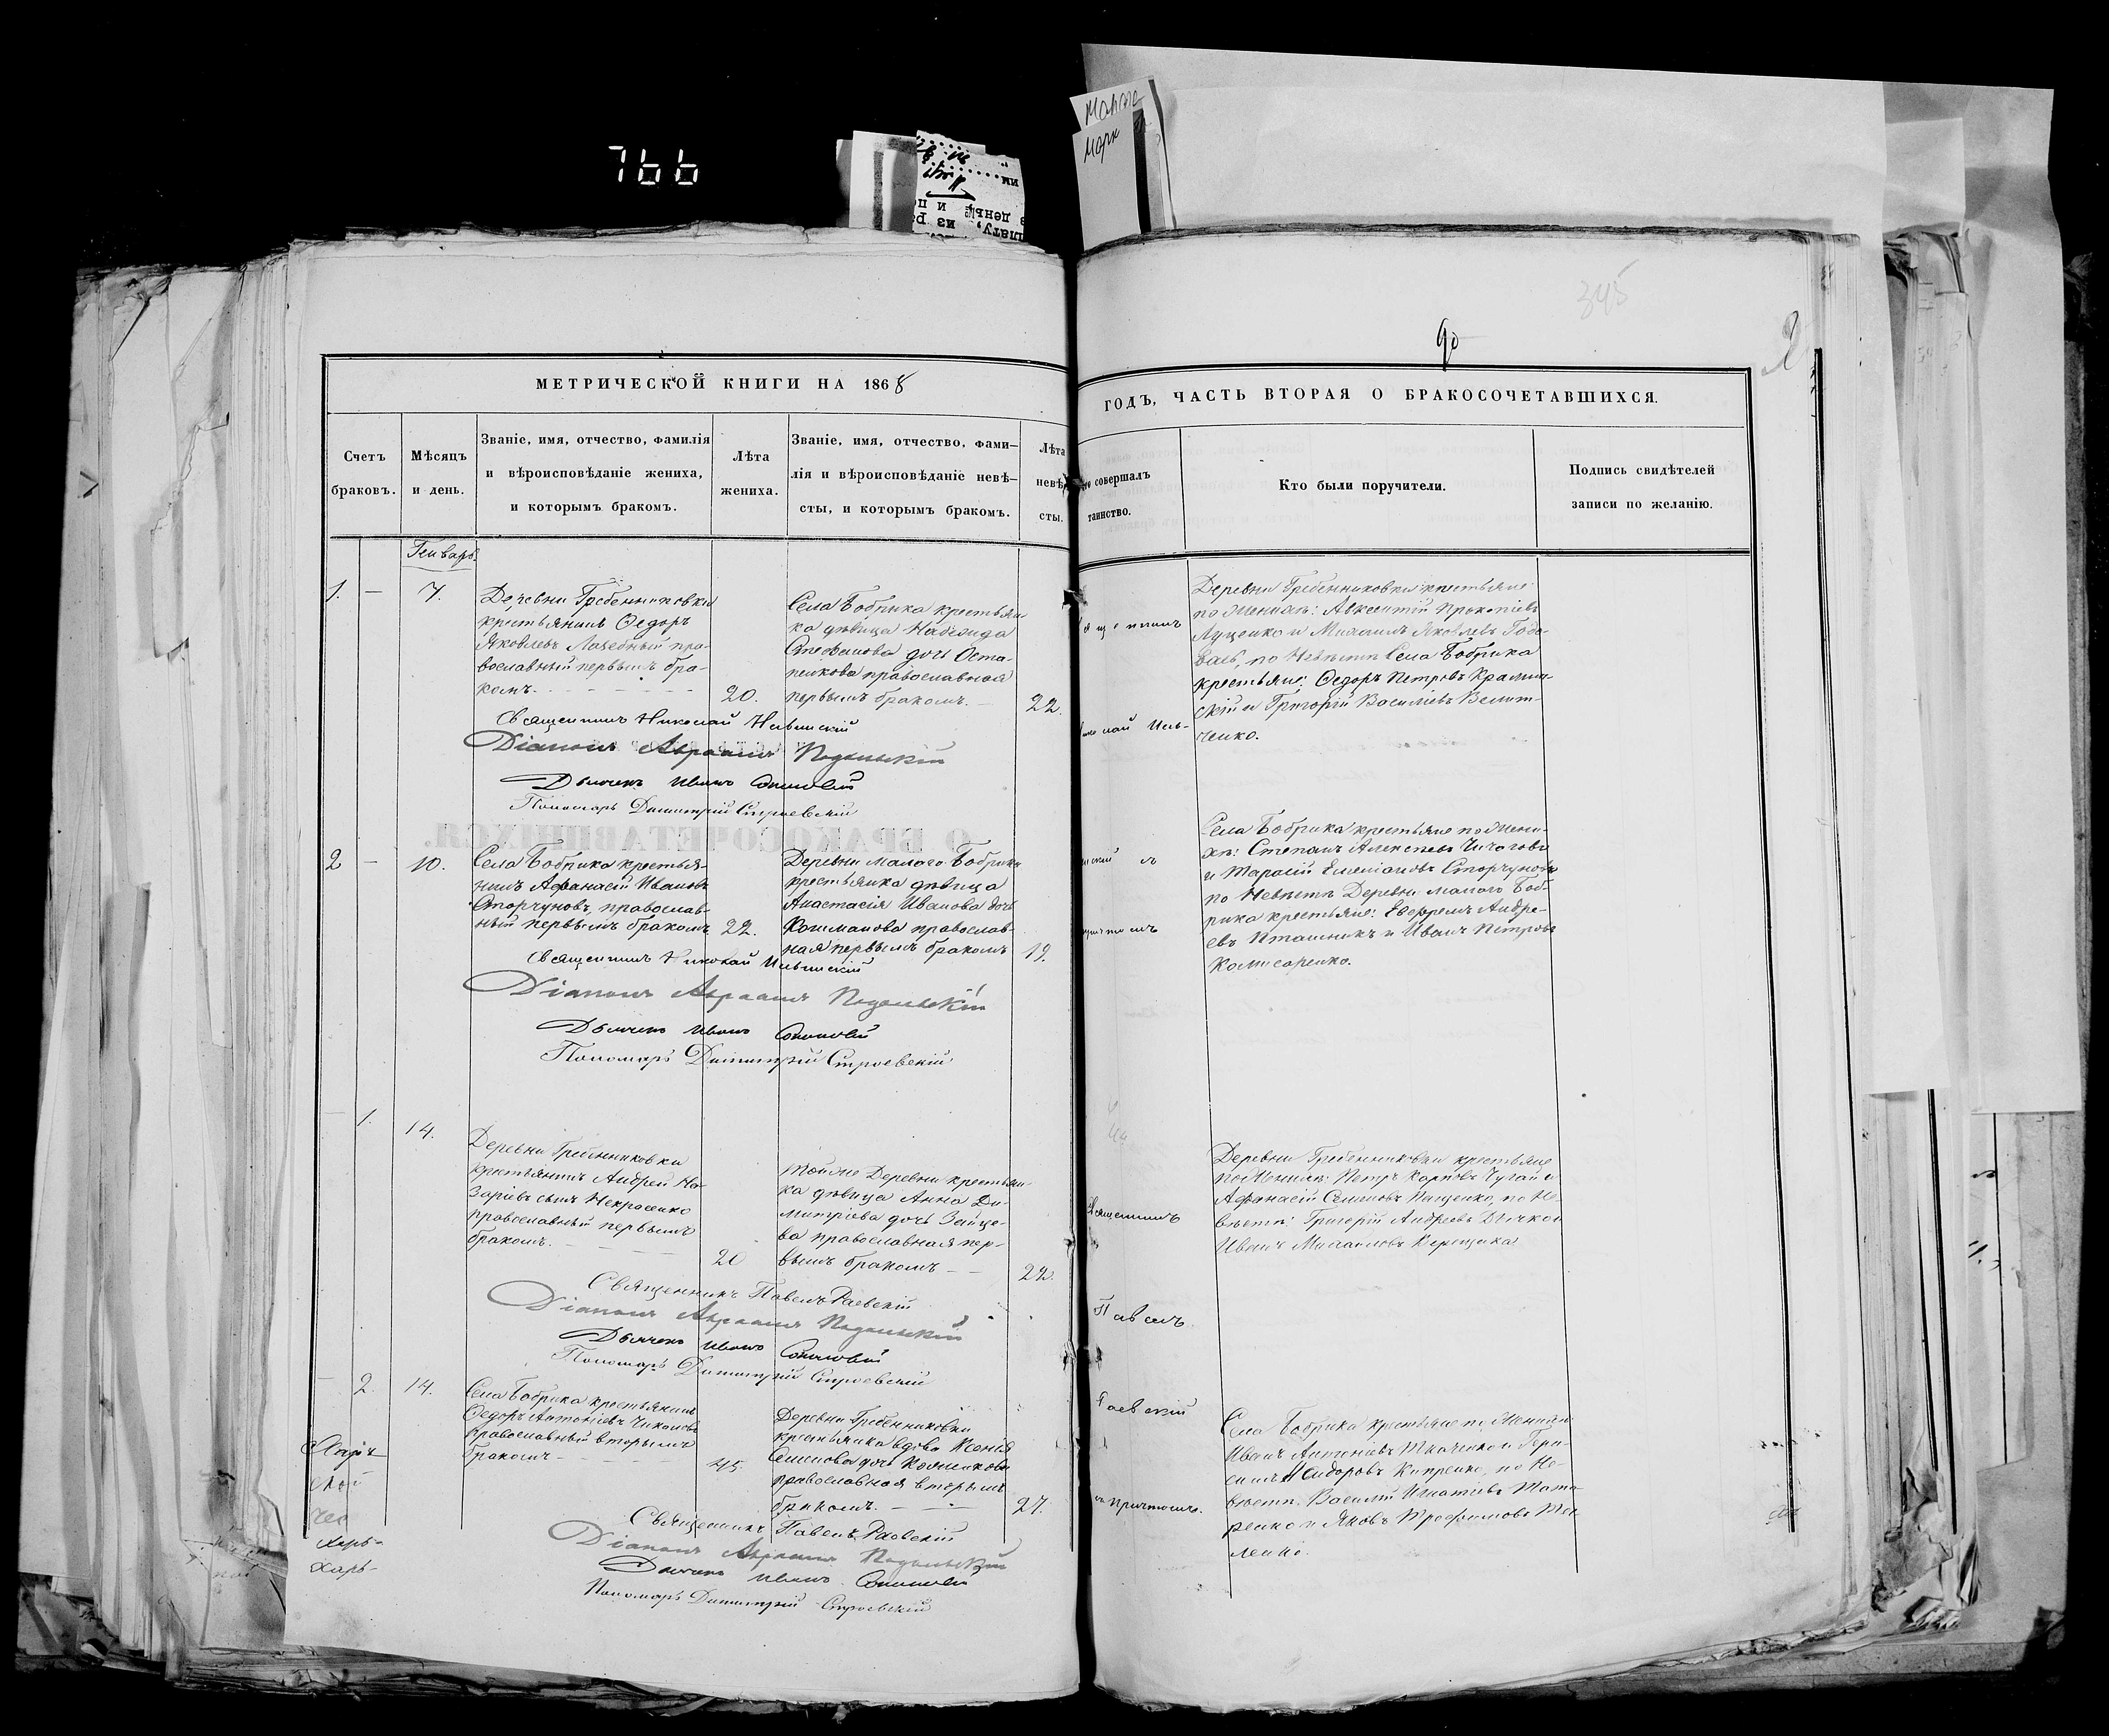 766
Марк
345
90
МЕТРИЧЕСКОЙ КНИГИ НА 1868
ГОДЪ, ЧАСТЬ ВТОРАЯ О БРАКОСОЧЕТАВШИХСЯ.
Счетъ
браковъ.
Мѣсяцъ
и день.
Званіе, имя, отчество, фамилія
и вѣроисповѣданіе жениха,
и которымъ бракомъ.
Лѣта
жениха.
Званіе, имя, отчество, фами-
лія и вѣроисповѣданіе невѣ-
сты, и которымъ бракомъ.
Лѣта
невѣ
сты.
совершалъ
таинство.
Кто были поручители.
Подпись свидѣтелей
записи по желанію.
Генварь
1. — 7.
Деревни Гребенниковки
крестьянинъ Ѳедоръ
Яковлевъ пра-
вославный первымъ бра-
комъ.
20.
Села Бобрика крестьян-
ка дѣвица Надежда
Стефанова дочь Оста-
пенкова православная
первымъ бракомъ. —
22.
Деревни Гребенниковки крестьяне
по Женихѣ: Авксентій Прокопіевъ
Луценко и Михаилъ Яковлевъ
по Невѣстѣ Села Бобрика
крестьяне: Ѳедоръ Петровъ
и Григорій Василіевъ
ченко.
Священникъ Николай Ильинскій
Діаконъ Авраамъ Подольскій
Дьячекъ Иванъ
Пономарь Димитрій Строевскій
2 — 10.
Села Бобрика крестья-
нинъ Афанасій Ивановъ
Сторчуновъ, православ-
ный первымъ бракомъ.
22.
Деревни Малого Бобрика
крестьянка дѣвица
Анастасія Иванова дочь
православ-
ная первымъ бракомъ
19.
Села Бобрика крестьяне по Жени-
хѣ: Степанъ Алексѣевъ
и Тарасій Емеліановъ Сторчуновъ
по Невѣстѣ Деревни малого Боб-
рика крестьяне: Евфремъ Андре-
евъ Пташникъ и Иванъ Петровъ
Комисаренко.
Священникъ Николай Ильинскій
Діаконъ Авраамъ Подольскій
Дьячекъ Иванъ
Пономарь Димитрій Строевскій
1. 14.
Деревни Гребенниковки
крестьянинъ Андрей На-
заріевъ сынъ Некрасенко
православный первымъ
бракомъ.
20
Тойже Деревни крестьян-
ка дѣвица Анна Ди-
митріева дочь Зайце-
ва православная пер-
вымъ бракомъ — —
22.
Священникъ
Павелъ
Раевскій
съ причтомъ.
Деревни Гребенниковки крестьяне
по Женихѣ: Петръ Карповъ Чугай и
Афанасій Семеновъ Пащенко, по Не-
вѣстѣ: Григорій Андреевъ Дьячко и
Иванъ Михайловъ
Священникъ Павелъ Раевскій
Діаконъ Авраамъ Подольскій
Дьячекъ Иванъ
Пономарь Димитрій Строевскій
2. 14.
Села Бобрика крестьянинъ
Ѳедоръ Антоніевъ
православный вторымъ
бракомъ
45.
Деревни Гребенниковки
крестьянка вдова Ксенія
Семенова дочь
православная вторымъ
бракомъ. — —
27.
Села Бобрика крестьяне по Женихѣ
Иванъ Антоніевъ Ткаченко и Гера-
симъ Сидоровъ Кипренко, по Не-
вѣстѣ: Василій Игнатіевъ Тата-
ренко и Яковъ Трофимовъ
ленко.
Священникъ Павелъ Раевскій
Діаконъ Авраамъ Подольскій
Дьячекъ Иванъ
Пономарь Димитрій Строевскій